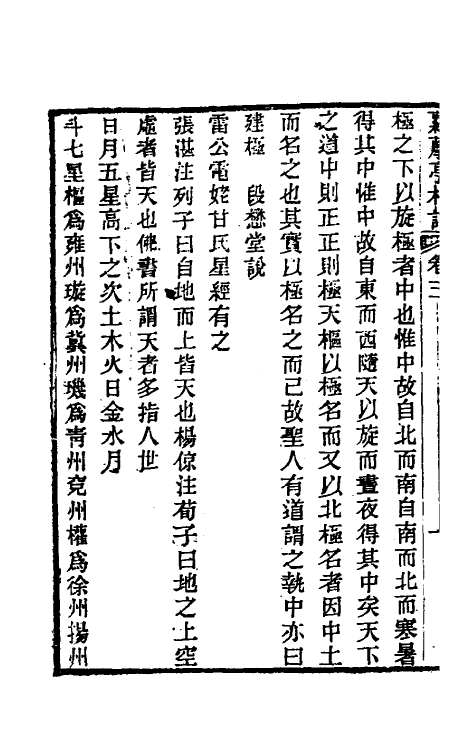 卷三
極之下以旋極者中也惟中故自北而南自南而北而寒暑
得其中惟中故自東而西隨天以旋而晝夜得其中矣天下
之道中則正正則極天樞以極名而又以北極名者因中土
而名之也其實以極名之而已故聖人有道謂之執中亦曰
建極　段懋堂說
雷公電姥甘氏星經有之
張湛注列子曰自地而上皆天也楊倞注荀子曰地之上空
虛者皆天也佛書所謂天者多指人世
日月五星高下之次土木火日金水月
斗七星樞為雍州璇為冀州璣為青州兗州權為徐州揚州